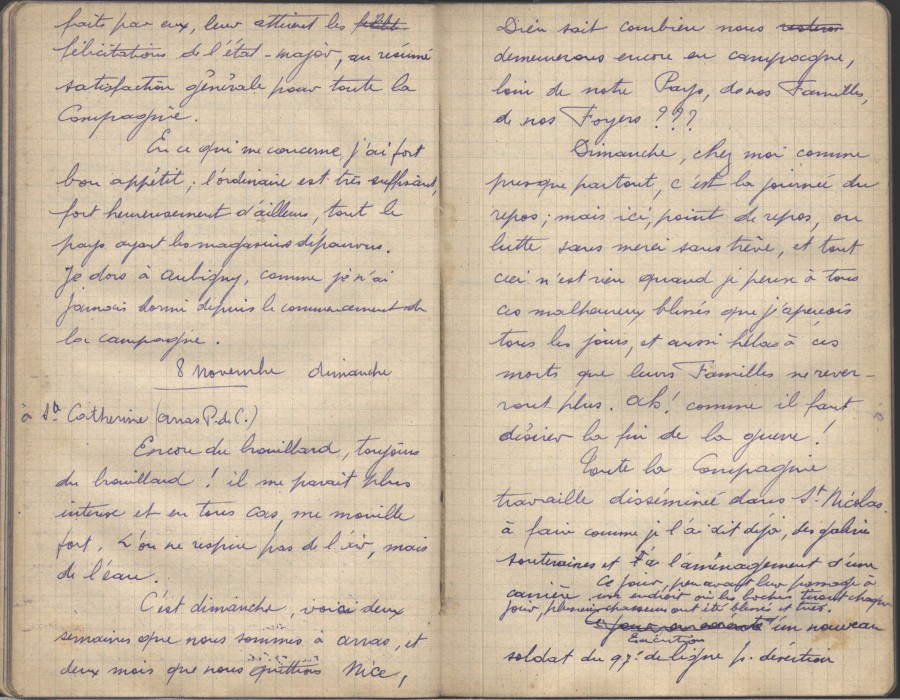 faits par eux, leur attirent les
félicitations de l'état-major, au résumé
satisfaction générale pour toute la
Compagnie.
En ce qui me concerne j'ai fort
bon appétit; l'ordinaire est très suffisant,
fort heureusement d'ailleurs, tout le
pays ayant les magasins dépourvus.
Je dors à Aubigny, comme je n'ai
jamais dormi depuis le commencement de
la campagne.
8 novembre dimanche
à Ste Catherine (arras P. de C.)
Encore du brouillard, toujours
du brouillard ! il me parait plus
intense et en tous cas, me mouille
fort. L'on ne respire pas de l'air, mais
de l'eau.
C'est dimanche, voici deux
semaines que nous sommes à arras, et
deux mois que nous quittions Nice,
Dieu sait combien nous
demeurerons encore en campagne,
loin de notre Pays, de nos Familles,
de nos Foyers ???
Dimanche, chez moi comme
presque partout, c'est la journée du
repos; mais ici, point de repos, on
lutte sans merci sans trêve, et tout
ceci n'est rien quand je pense à tous
ces malheureux blessés que j'aperçois
tous les jours, et aussi hélas à ces
morts que leurs Familles ne rever-
ront plus. Ah! comme il faut
désirer la fin de la guerre !
Toute la Compagnie
travaille disséminée dans St Nicolas.
à faire comme je l'ai dit déjà, des galeries
souteraines et à l'aménagement d'une
carrière. Ce jour, peu avant leur passage à
un endroit où les boches tirent chaque
jour, plusieurs chasseurs ont été blessés et tués.
Exécution
d'un nouveau
soldat du 97e de ligne p. désertion